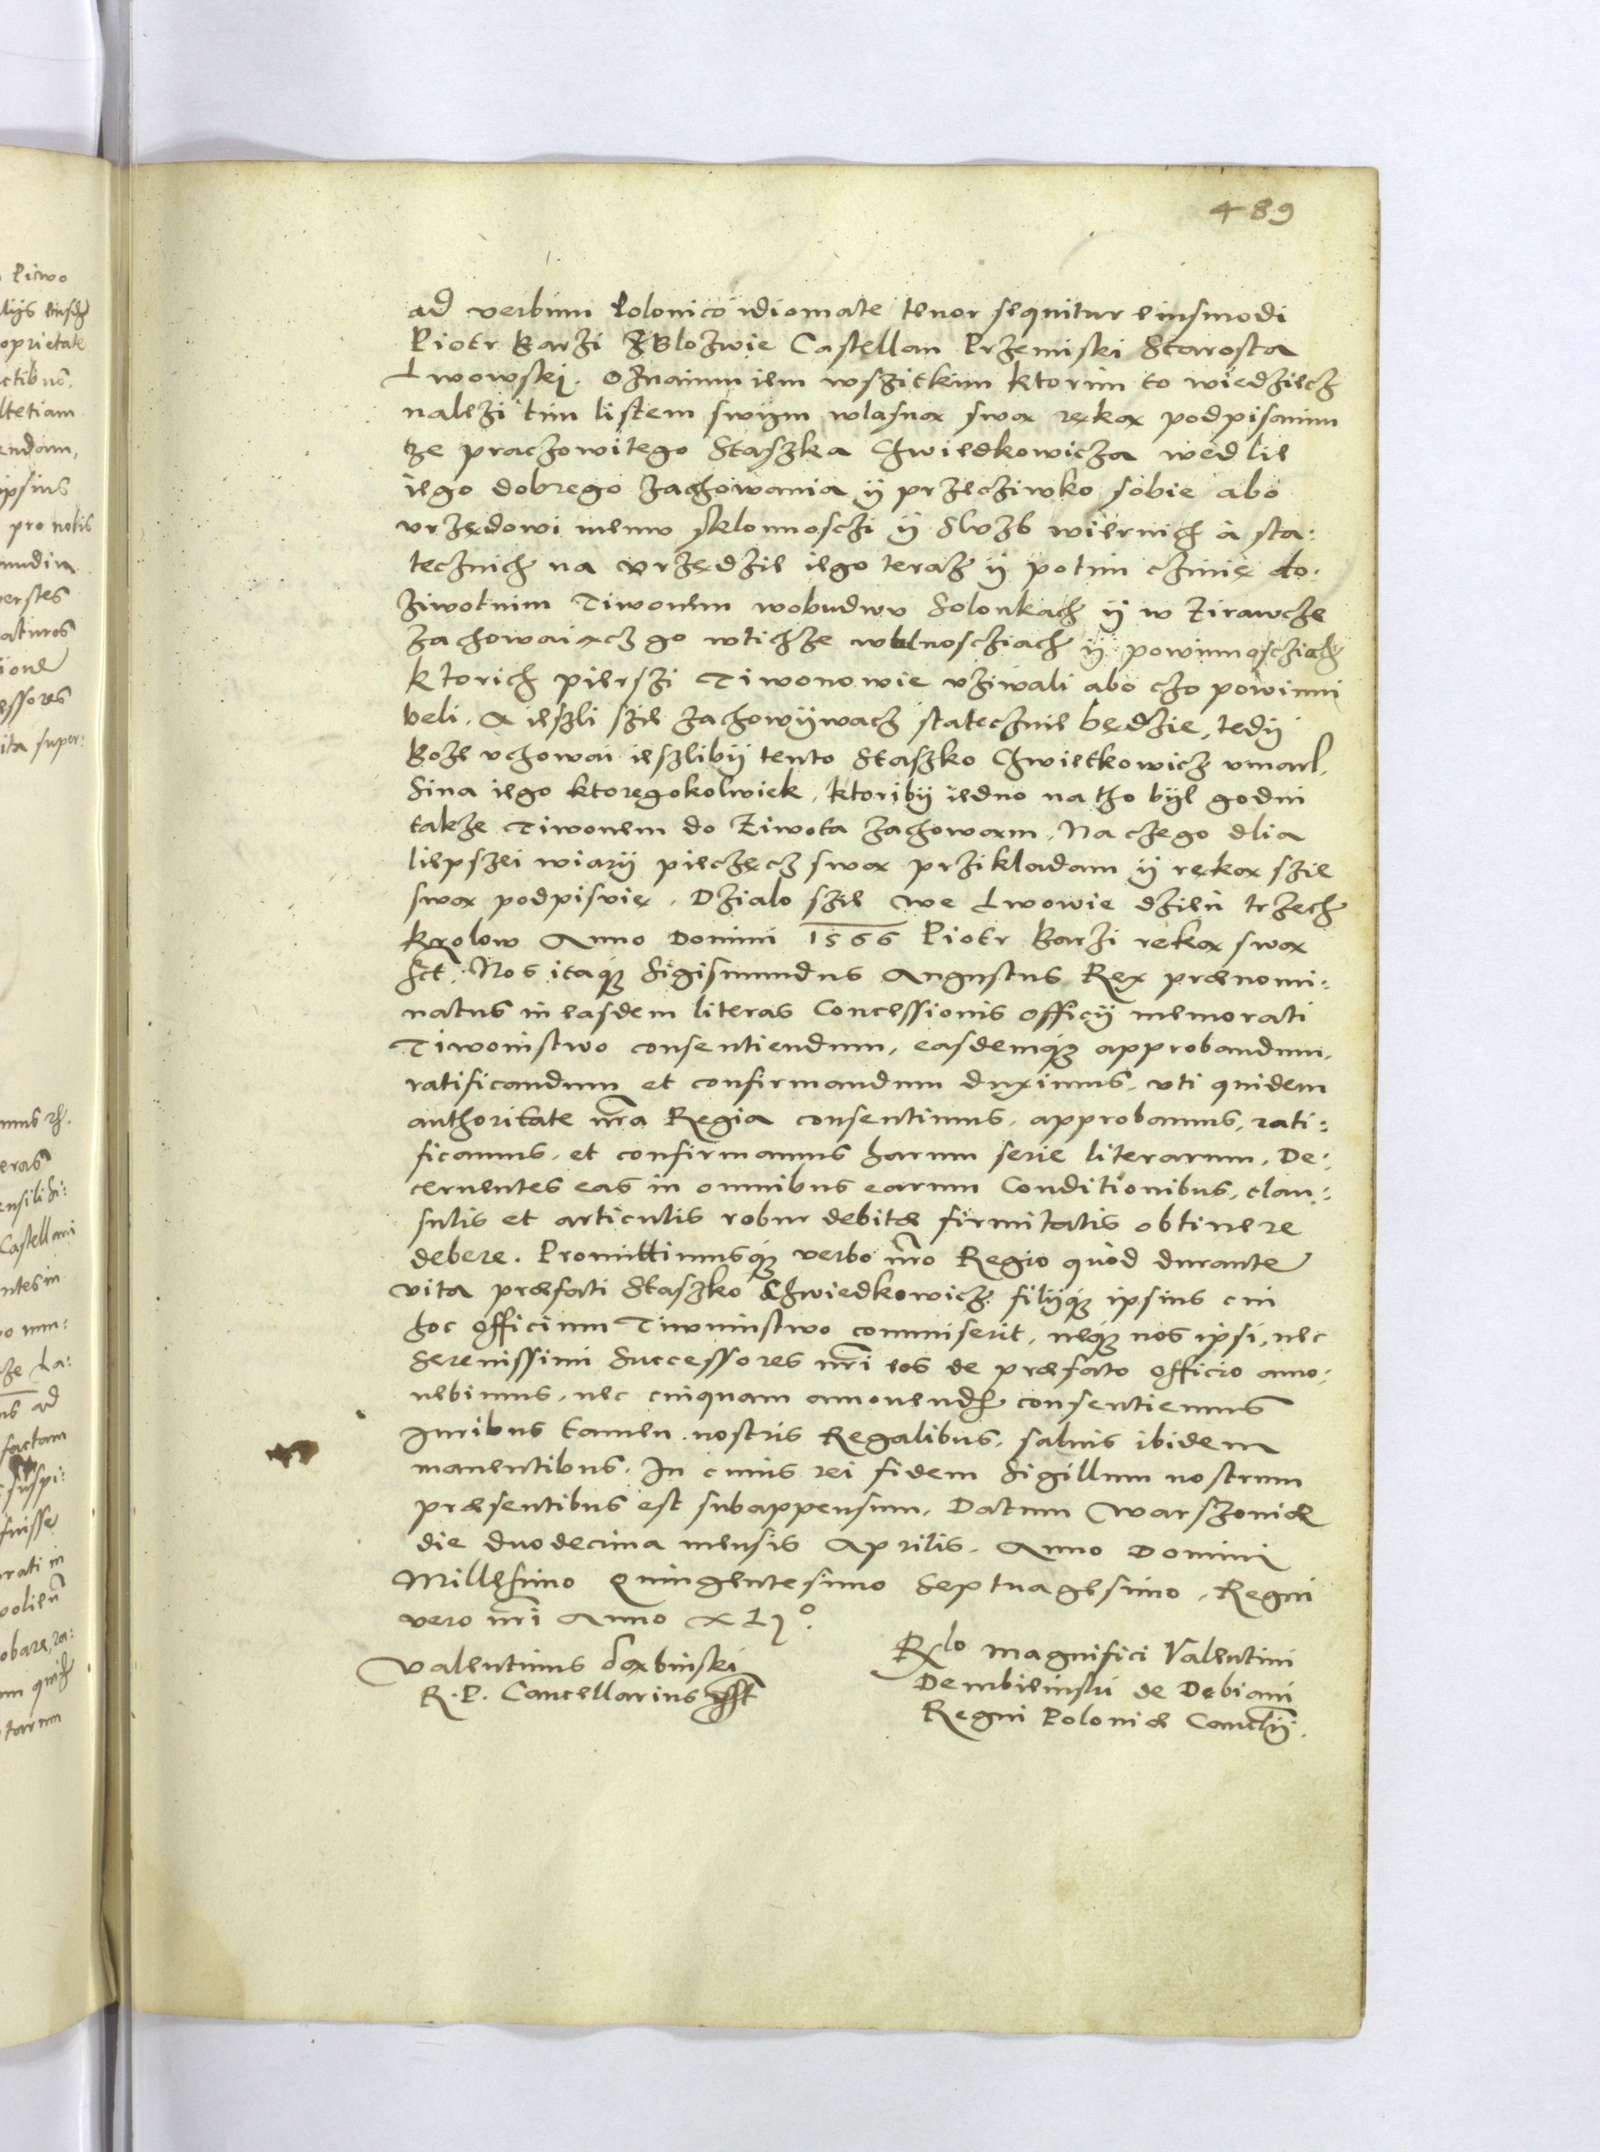 489
ad verbum Polonico idiomate tenor sequitur eiusmodi
Piotr Barzi Z Blozwie Castellan Przemiski Starosta
Lwowski. Oznaimuiem wszitkim ktorim to wiedziecz
nalezi tim listem swym wlasnα swα rękα podpisanim
tze praczowitego Staszka Chwiedkowicza wedlie
iego dobrego zachowania ÿ przecziwko sobie abo
vrzędowi memv sklonnosczi ÿ Slvzb wiernich à sta:
tecznich na vrzędzie iego teraz ÿ potim czinię do:
ziwotnim Tiwonem wobudwv Solonkach ÿ w Zirawcze
zachowaiαcz go wtichze wolnoscziach ÿ powinnoscziach
ktorich pierszi Tiwonowie vziwali abo czo powinni
beli. A ieszli szie zachowÿwacz statecznie będzie, tedÿ
Boze vchowai ieszlibÿ tento Staszko Chwietkowicz vmarl,
Sina iego ktoregokolwiek, ktoribÿ iedno na tho bÿl godni
takze Tiwonem do Ziwota zachowαm. Na czego dlia
liepszei wiarÿ pieczęcz swα przikladam ÿ rękα szie
swα podpisvię. Dzialo szie we Lwowie dzień trzech
krolow Anno Domini 1566 Piotr Barzi rękα swα
sst. Nos itaq₃ Sigismundus Augustus Rex prænomi:
natus in easdem literas Concessionis officÿ memorati
Tiwonstwo consentiendum, easdemq₃ approbandum,
ratificandum et confirmandum duximus, vti quidem
authoritate nr̃a Regia consentimus, approbamus, rati:
ficamus, et confirmamus harum serie literarum, De:
cernentes eas in omnibus earum Conditionibus, clau:
sulis et articulis robur debitæ firmitatis obtinere
debere. Promittimusq₃ verbo nr̃o Regio quòd durante
vita præfati Staszko Chwiedkowicz filÿq₃ ipsius cui
hoc officium Tiwunstwo commiserit, neq₃ nos ipsi, nec
Serenissimi Successores nr̃i eos de præfato officio amo:
uebimus, nec cuiquam amouend consentiemus
Iuribus tamen nostris Regalibus, saluis ibidem
manentibus. In cuius rei fidem Sigillum nostrum
præsentibus est subappensum. Datum Warszoviæ
die duodecima mensis Aprilis. Anno Domini
Millesimo Quingentesimo Septuagesimo, Regni
vero nr̃i Anno XLIº.
Valentinus Dαbinski
R. P. Cancellarius sst
Rlo Magnifici Valentini
Dembienski de Debiani
Regni Poloniæ Cancelÿ.